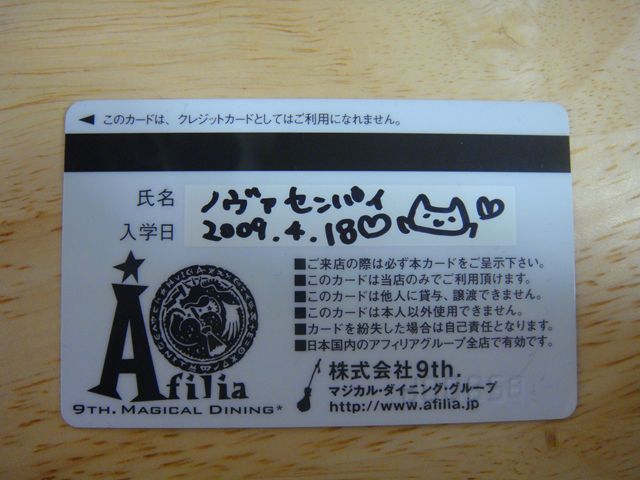 ◀ このカードは、クレジットカードとしてはご利用になれません。
氏名 ノヴァセンパイ
入学日 2009.4.18♡
■ご来店の際は必ず本カードをご呈示下さい。
■このカードは当店のみでご利用頂けます。
■このカードは他人に貸与、譲渡できません。
■このカードは本人以外使用できません。
■カードを紛失した場合は自己責任となります。
■日本国内のアフィリアグループ全店で有効です。
Afilia
9TH. MAGICAL DINING*
株式会社9th.
マジカル・ダイニング・グループ
http://www.afilia.jp